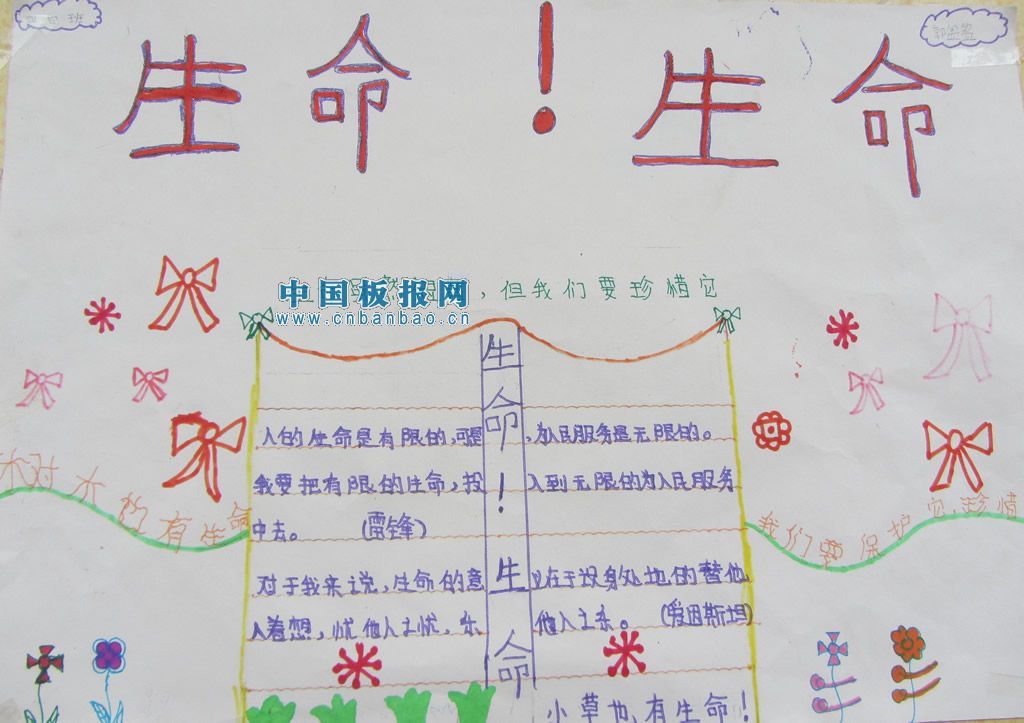 班
生命！生命
中国板报网
www.cnbanbao.cn
，但我们要珍惜它
生命！生命
人的生命是有限的，可是，为人民服务是无限的。
我要把有限的生命，投入到无限的为人民服务
中去。（雷锋）
对于我来说，生命的意义在于设身处地的替他
人着想，忧他人之忧，乐他人之乐。（爱因斯坦）
有生命
我们要保护它，珍惜
小草也有生命！